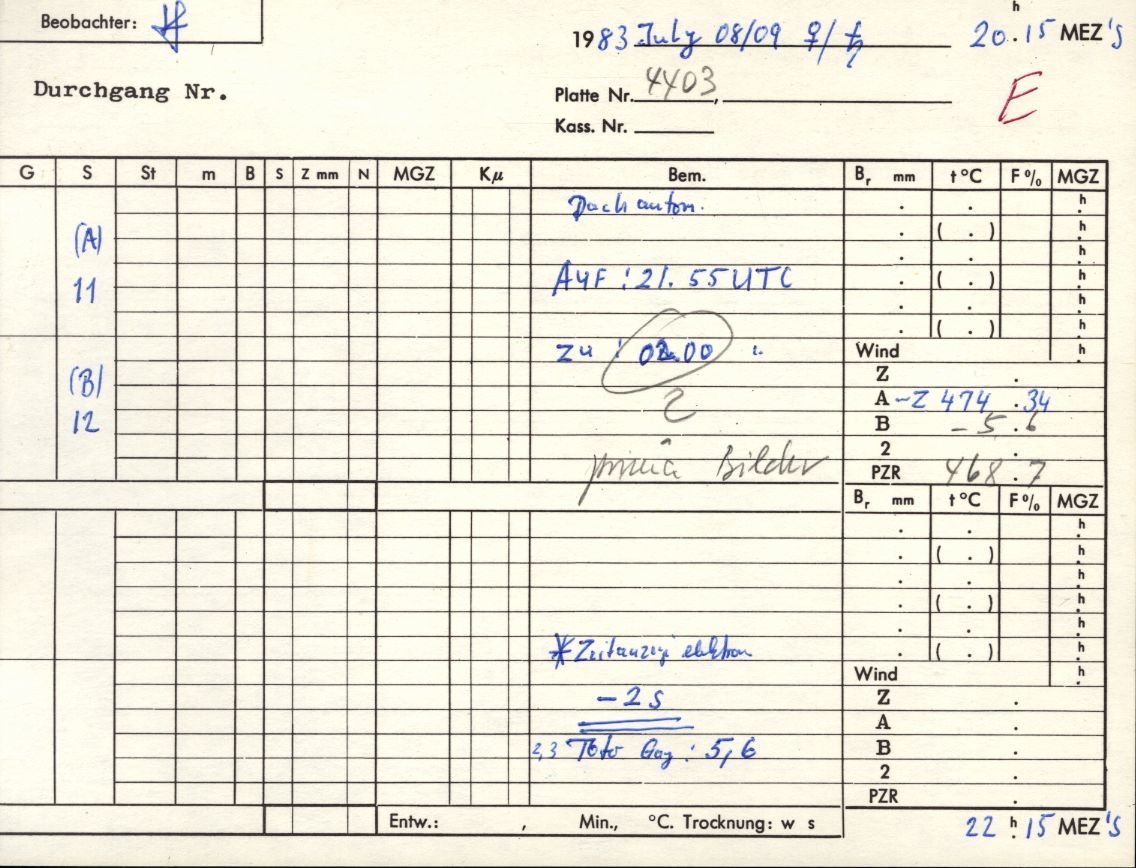 Beobachter:
1983 July 08/09 ♀/♄ 20.ʰ15 MEZ'S
Durchgang Nr.
Platte Nr. 4403,
E
Kass. Nr.
G S St m B S Z mm N MGZ Kμ Bem. Bᵣ mm t °C F % MGZ
. . h
(A) . ( . ) h
. . h
11 AUF : 21.55 UTC . ( . ) h
. . h
. ( . ) h
zu : 02.00 " Wind h
(B) Z .
2 A -Z 474 .34
12 B -5.6
prima Bilder 2 .
PZR 468.7
Bᵣ mm t °C F % MGZ
. . h
. ( . ) h
. . h
. ( . ) h
. . h
*Zeitanzeige elektron . ( . ) h
Wind h
-2 s Z .
A .
2,3 : 5,6 B .
2 .
PZR .
Entw.: , Min., °C. Trocknung: w s
22 ʰ.15 MEZ'S